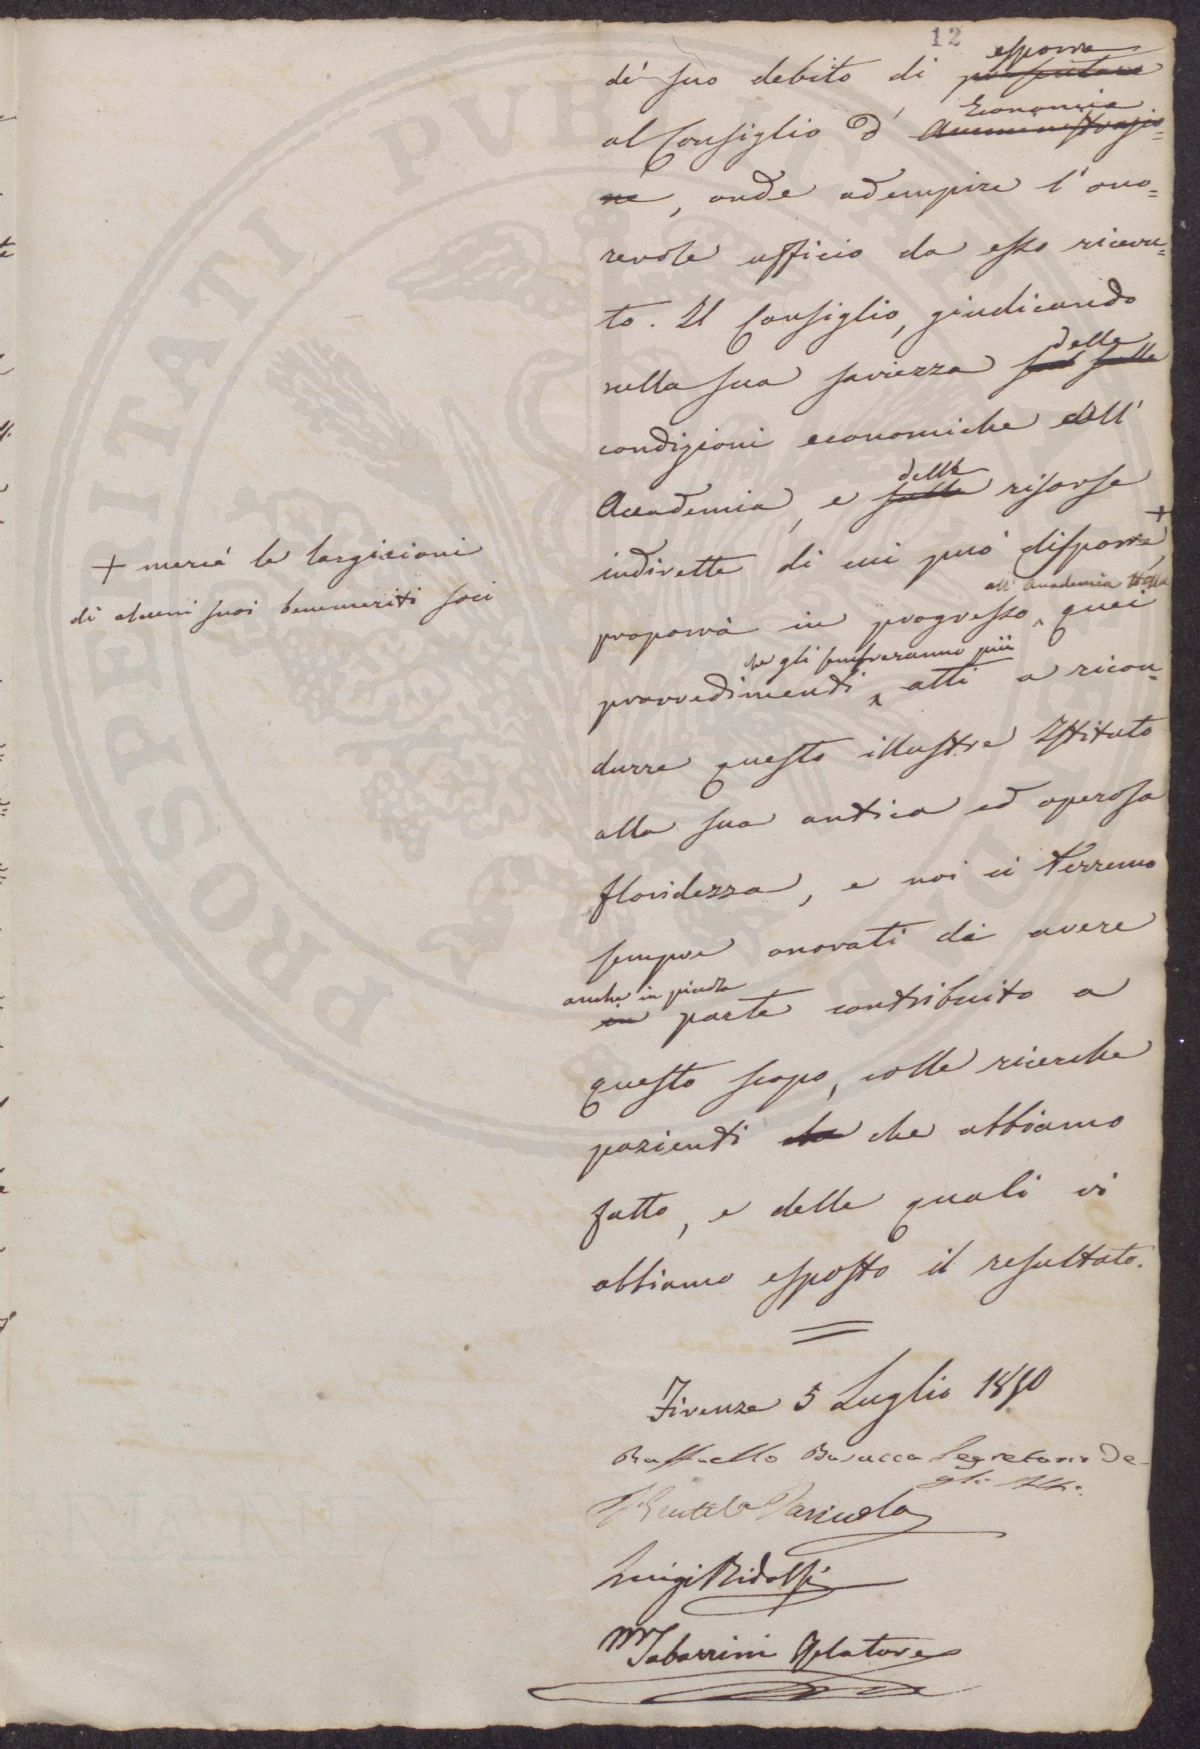 12
esporre
de' suo debito di presentare
Economia
al Consiglio d' Amministrazio=
ne, onde adempire l'ono=
revole ufficio da esso ricevu=
to. Il Consiglio, giudicando
delle
nella sua saviezza sulle
condizioni economiche dell'
delle
Accademia, e sulle risorse
+
indirette di cui può disporre,
+ mercé le largizioni
di alcuni suoi benemeriti soci
all' Accademia
proporrà in progresso quei
che gli sembreranno più
provvedimenti atti a ricon=
durre questo illustre Istituto
alla sua antica ed operosa
floridezza, e noi ci terremo
sempre onorati di avere
anche in piccola
in parte contribuito a
questo scopo, colle ricerche
pazienti che che abbiamo
fatto, e delle quali vi
abbiamo esposto il resultato.
Firenze 5 Luglio 1850
Raffaello Busacca Segretario De-
gli Atti.
Luigi Ridolfi
M Tabarrini Relatore
PVBLICAE PROSPERITATI